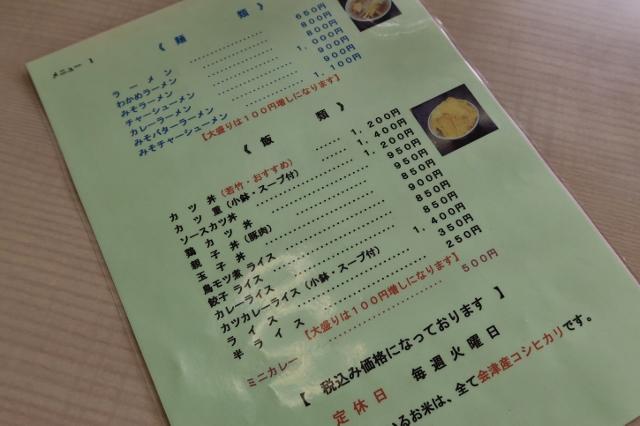 メニュー 1
《 麺 類 》
ラーメン ................ 650円
わかめラーメン ................ 800円
みそラーメン ................ 800円
チャーシューメン ................ 1,000円
カレーラーメン ................ 900円
みそバターラーメン ................ 900円
みそチャーシューメン ................ 1,100円
【大盛りは100円増しになります】
《 飯 類 》
カツ丼(若竹・おすすめ) ...... 1,200円
カツ重(小鉢・スープ付) ...... 1,400円
ソースカツ丼 ................ 1,200円
鶏カツ丼 ................ 950円
親子丼(豚肉) ................ 950円
玉子丼 ................ 850円
鳥モツ煮ライス ................ 900円
餃子ライス ................ 850円
カレーライス ................ 850円
カツカレーライス(小鉢・スープ付) ... 1,400円
ライス ................ 350円
半ライス ................ 250円
【大盛りは100円増しになります】
ミニカレー ................ 500円
【 税込み価格になっております 】
定休日 毎週火曜日
るお米は、全て会津産コシヒカリです。